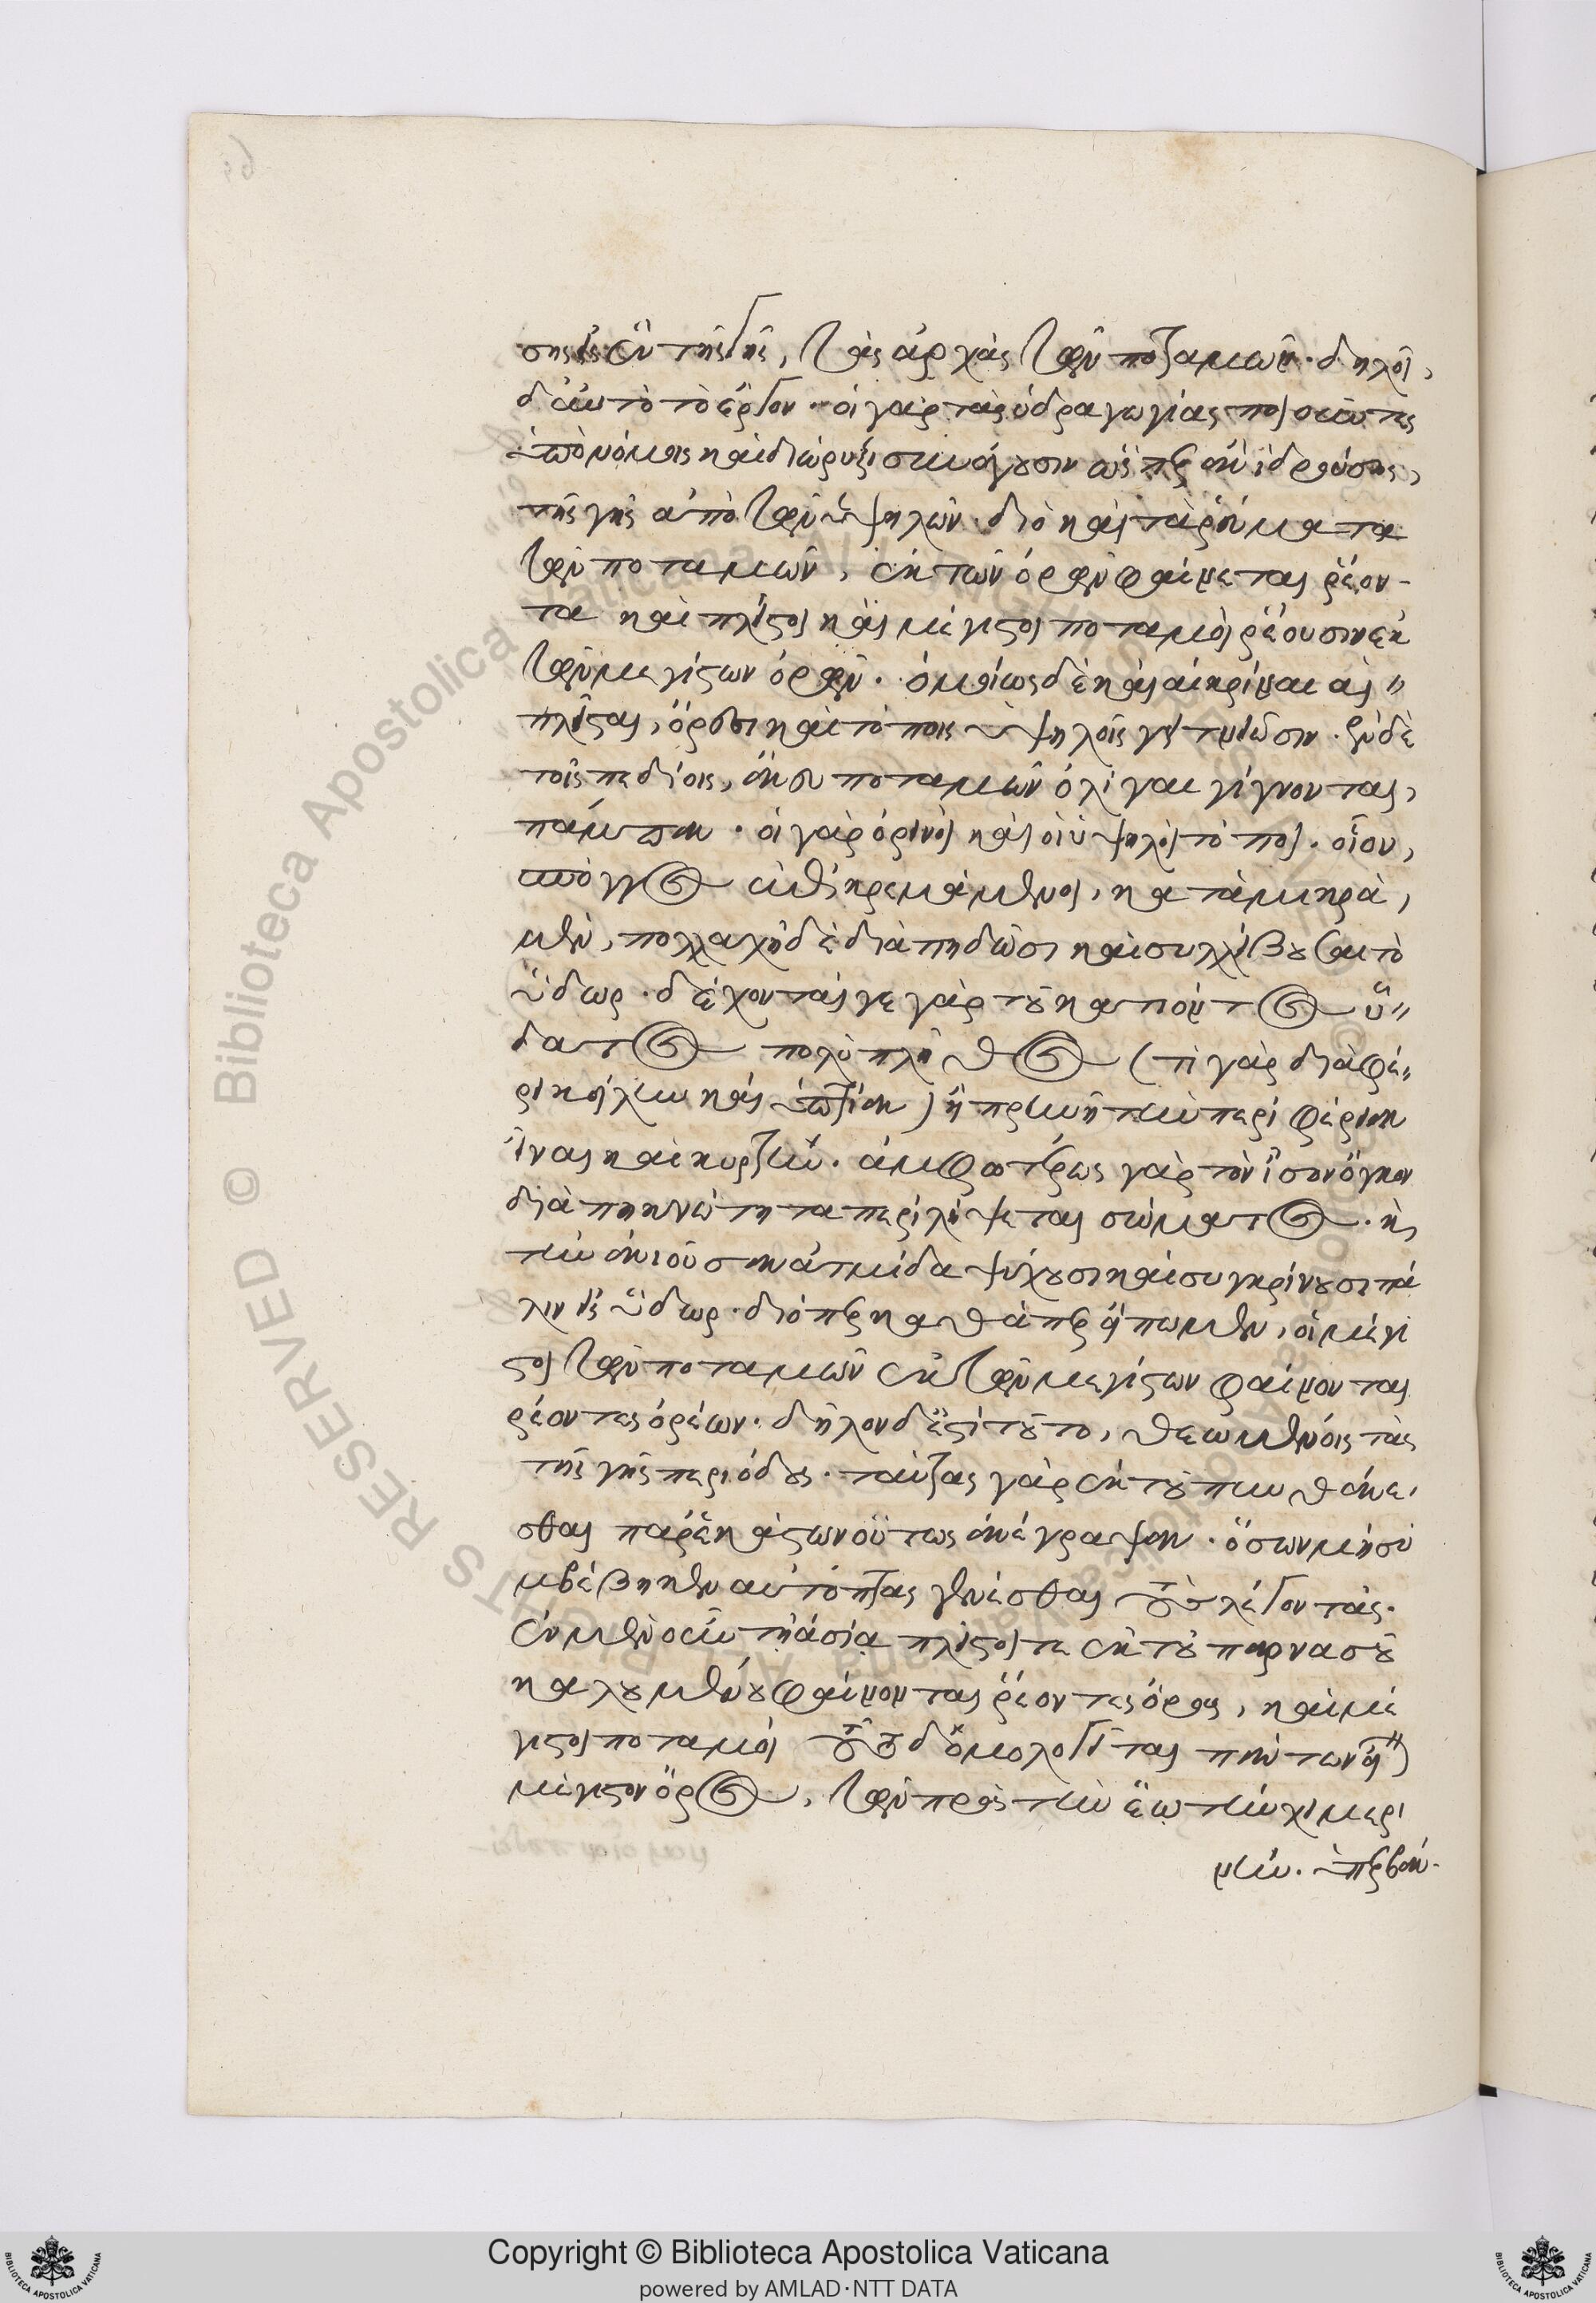 σης ἐκ τῆς γῆς, τὰς ἀρχὰς τῶν ποταμῶν. δηλοῖ,
δ' αὐτὸ τὸ ἔργον. οἱ γὰρ τὰς ὑδραγωγίας ποιοῦντες
ὑπονόμοις καὶ διώρυξι συνάγουσιν ὥσπερ ἂν ἰδρούσης,
τῆς γῆς ἀπὸ τῶν ὑψηλῶν. διὸ καὶ τὰ ῥεύματα
τῶν ποταμῶν, ἐκ τῶν ὀρῶν φαίνεται ῥέον-
τα καὶ πλεῖστοι καὶ μέγιστοι ποταμοὶ ῥέουσιν ἐκ
τῶν μεγίστων ὀρῶν. ὁμοίως δὲ καὶ αἱ κρῆναι αἱ
πλεῖσται, ὄρεσι καὶ τόποις ὑψηλοῖς γειτνιῶσιν. ἐν δὲ
τοῖς πεδίοις, ἄνευ ποταμῶν ὀλίγαι γίγνονται,
πάμπαν. οἱ γὰρ ὀρεινοὶ καὶ οἱ ὑψηλοὶ τόποι. οἷον,
σπόγγος ἐπικρεμάμενοι, κατὰ μικρὰ,
μὲν, πολλαχῆ δὲ διαπηδῶσι καὶ συλλείβουσι τὸ
ὕδωρ. δέχονταί γε γὰρ τοῦ κατιόντος ὕ-
δατος πολὺ πλῆθος (τί γὰρ διαφέ-
ρει κοίλην καὶ ὑπτίαν) ἢ πρηνῆ τὴν περιφέρειαν
εἶναι καὶ κυρτήν. ἀμφοτέρως γὰρ τὸν ἴσον ὄγκον
διὰ πυκνότητα περιλήψεται σώματος. καὶ
τὴν ἀνιοῦσαν ἀτμίδα ψύχουσι καὶ συγκρίνουσι πά
λιν εἰς ὕδωρ. διόπερ καθάπερ εἴπωμεν, οἱ μέγι
στοι τῶν ποταμῶν ἐκ τῶν μεγίστων φαίνονται
ῥέοντες ὀρέων. δῆλον δ' ἐστὶ τοῦτο, θεωμένοις τὰς
τῆς γῆς περιόδους. ταύτας γὰρ ἐκ τοῦ πυνθάνε
σθαι παρ' ἑκάστων οὕτως ἀνέγραψαν. ὅσων μὴ συ
μβέβηκεν αὐτόπτας γενέσθαι τοὺς λέγοντας.
ἐν μὲν οὖν τῇ ἀσίᾳ πλεῖστοί τε ἐκ τοῦ παρνασοῦ
καλουμένου φαίνονται ῥέοντες ὄρους, καὶ μέ
γιστοι ποταμοί τοῦτο δ' ὁμολογεῖται πάντων εἶ
μέγιστον ὄρος, τῶν πρὸς τὴν ἕω τὴν χιμερι
νήν. ὑπερβάν-